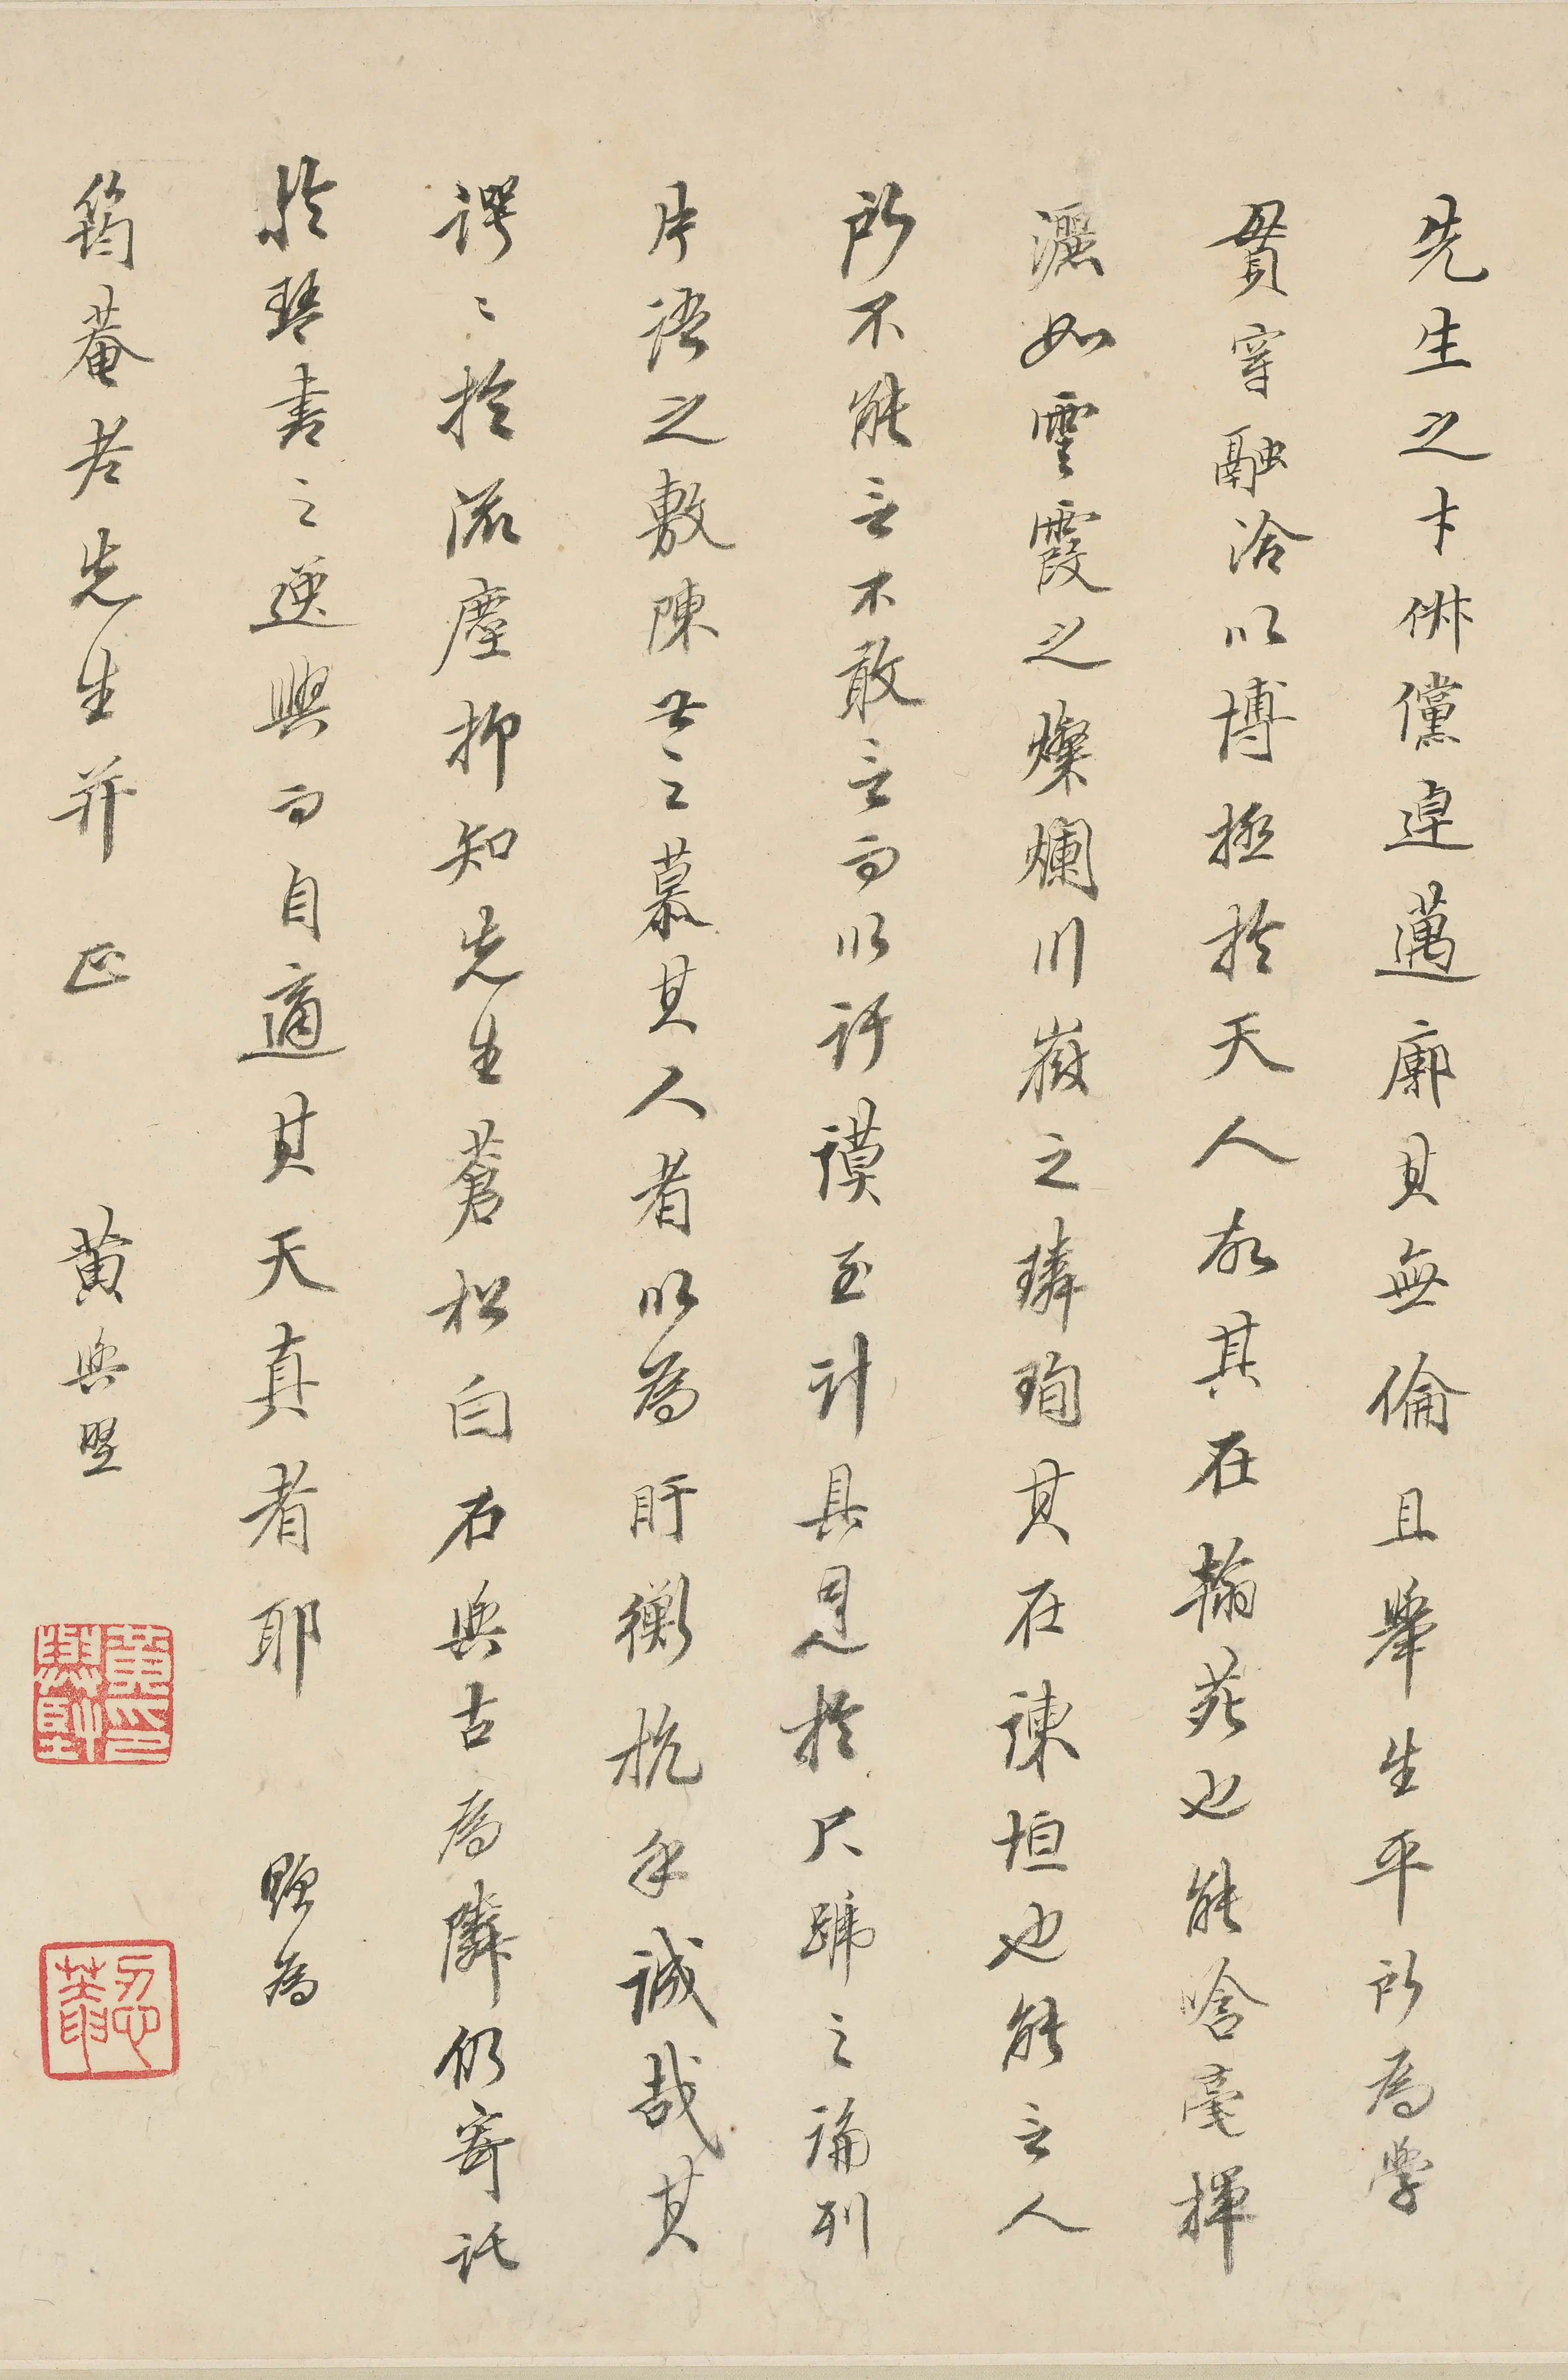 先生之才俶儻違邁廓其無倫且舉生平所為學
貫穿融洽以博極於天人故其在翰苑也能含毫揮
灑如雲霞之燦爛川嶽之璘珣其在諫垣也能言人
所不能言不敢言而以訏謨至計具見於尺蹏之論列
片語之敷陳世之慕其人者以為盱衡抗手誠哉其
諤〻於流塵抑知先生蒼松白石與古為隣仍寄託
於琴書之逸興而自適其天真者耶 題為
筠菴老先生并正 黃與堅
黃與堅印
忍菴